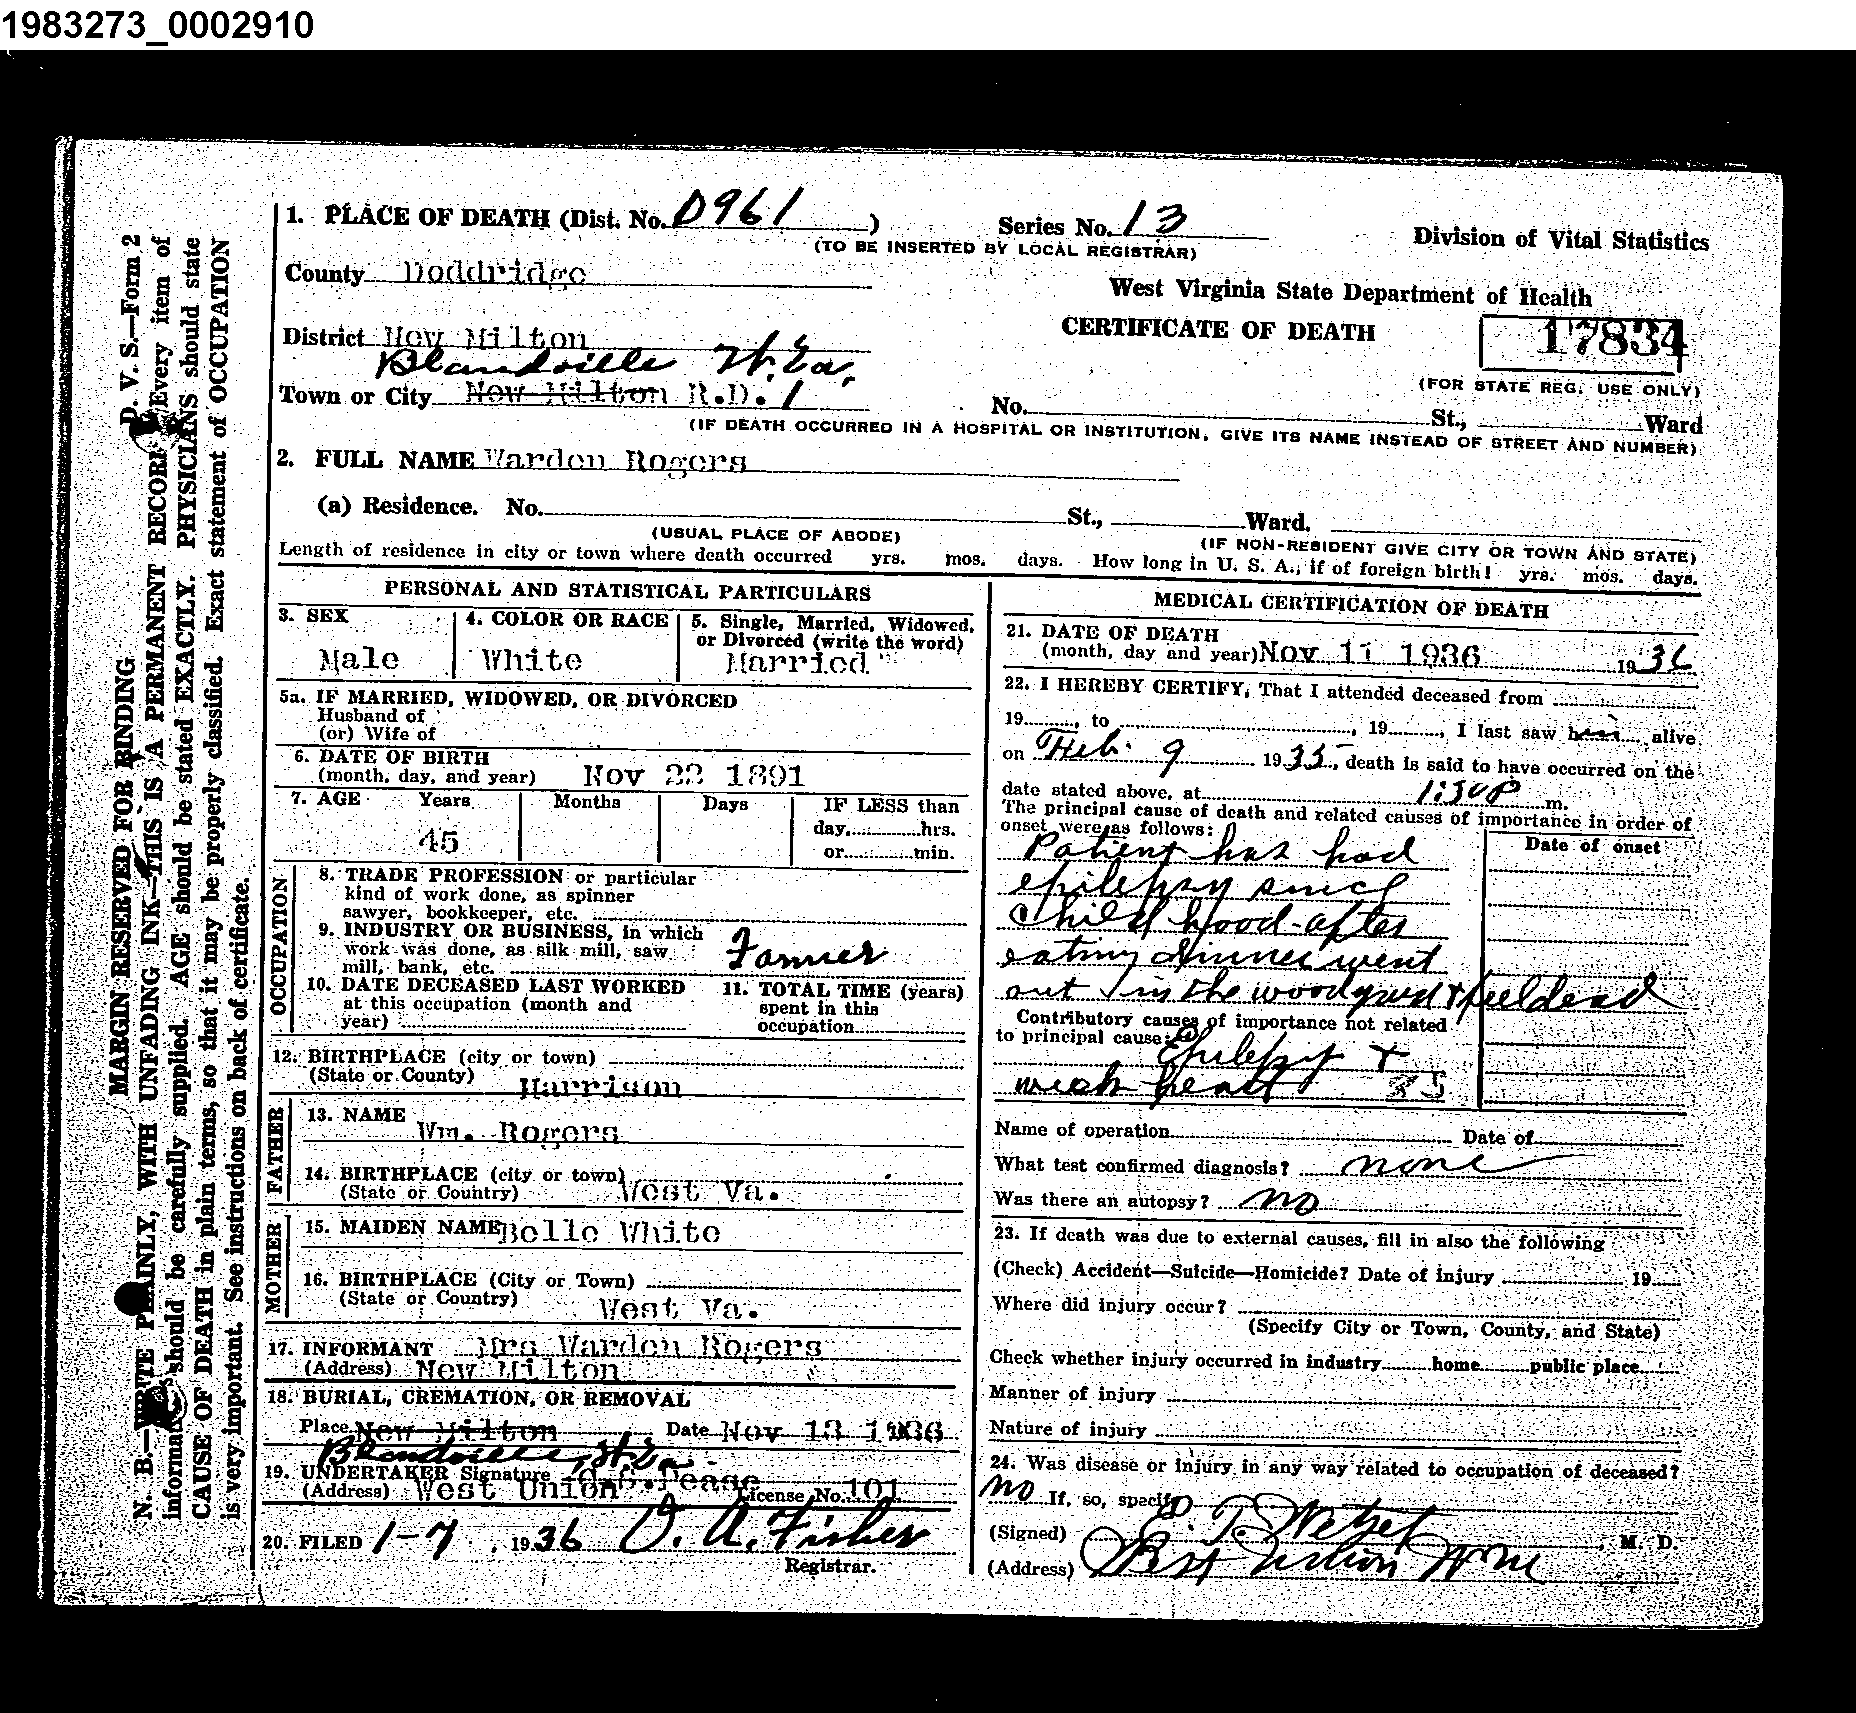 1983273_0002910
D. V. S.—Form 2
MARGIN RESERVED FOR BINDING
N. B.—WRITE PLAINLY, WITH UNFADING INK—THIS IS A PERMANENT RECORD Every item of
information should be carefully supplied. AGE should be stated EXACTLY. PHYSICIANS should state
CAUSE OF DEATH in plain terms, so that it may be properly classified. Exact statement of OCCUPATION
is very important. See instructions on back of certificate.
1. PLACE OF DEATH (Dist. No. D961 )
Series No. 13
(TO BE INSERTED BY LOCAL REGISTRAR)
Division of Vital Statistics
County Doddridge
West Virginia State Department of Health
CERTIFICATE OF DEATH
17834
(FOR STATE REG. USE ONLY)
District New Milton
Blandville W.Va.
Town or City New Milton R.D. 1
No. St., Ward
(IF DEATH OCCURRED IN A HOSPITAL OR INSTITUTION, GIVE ITS NAME INSTEAD OF STREET AND NUMBER)
2. FULL NAME Warden Rogers
(a) Residence. No. St., Ward.
(USUAL PLACE OF ABODE)
(IF NON-RESIDENT GIVE CITY OR TOWN AND STATE)
Length of residence in city or town where death occurred yrs. mos. days. How long in U. S. A., if of foreign birth? yrs. mos. days.
PERSONAL AND STATISTICAL PARTICULARS
3. SEX
Male
4. COLOR OR RACE
White
5. Single, Married, Widowed,
or Divorced (write the word)
Married
5a. IF MARRIED, WIDOWED, OR DIVORCED
Husband of
(or) Wife of
6. DATE OF BIRTH
(month, day, and year) Nov 22 1891
7. AGE Years Months Days IF LESS than
day, hrs.
45
or min.
OCCUPATION
8. TRADE PROFESSION or particular
kind of work done, as spinner
sawyer, bookkeeper, etc.
9. INDUSTRY OR BUSINESS, in which
work was done, as silk mill, saw
mill, bank, etc. Farmer
10. DATE DECEASED LAST WORKED
at this occupation (month and
year)
11. TOTAL TIME (years)
spent in this
occupation
12. BIRTHPLACE (city or town)
(State or County) Harrison
FATHER
13. NAME Wm. Rogers
14. BIRTHPLACE (city or town)
(State or Country) West Va.
MOTHER
15. MAIDEN NAME Belle White
16. BIRTHPLACE (City or Town)
(State or Country) West Va.
17. INFORMANT Mrs Warden Rogers
(Address) New Milton
18. BURIAL, CREMATION, OR REMOVAL
Place New Milton Date Nov 13 1936
Blandville, W.Va.
19. UNDERTAKER Signature Pease
(Address) West Union License No. 101
20. FILED 1-7, 1936 O. A. Fisher
Registrar.
MEDICAL CERTIFICATION OF DEATH
21. DATE OF DEATH
(month, day and year) Nov 11 1936 1936
22. I HEREBY CERTIFY, That I attended deceased from
19 , to , 19 , I last saw him alive
on Feb. 9 1935, death is said to have occurred on the
date stated above, at 1:30P m.
The principal cause of death and related causes of importance in order of
onset were as follows:
Date of onset
Patient has had
epilepsy since
Child hood-after
eating dinner went
out in the woodyard & fell dead
Contributory causes of importance not related
to principal cause:
Epilepsy +
weak heart 85
Name of operation Date of
What test confirmed diagnosis? none
Was there an autopsy? no
23. If death was due to external causes, fill in also the following
(Check) Accident—Suicide—Homicide? Date of injury 19
Where did injury occur?
(Specify City or Town, County, and State)
Check whether injury occurred in industry home public place
Manner of injury
Nature of injury
24. Was disease or injury in any way related to occupation of deceased?
no If, so, specify
(Signed) E. T. Wetzel, M. D.
(Address) West Union W Va